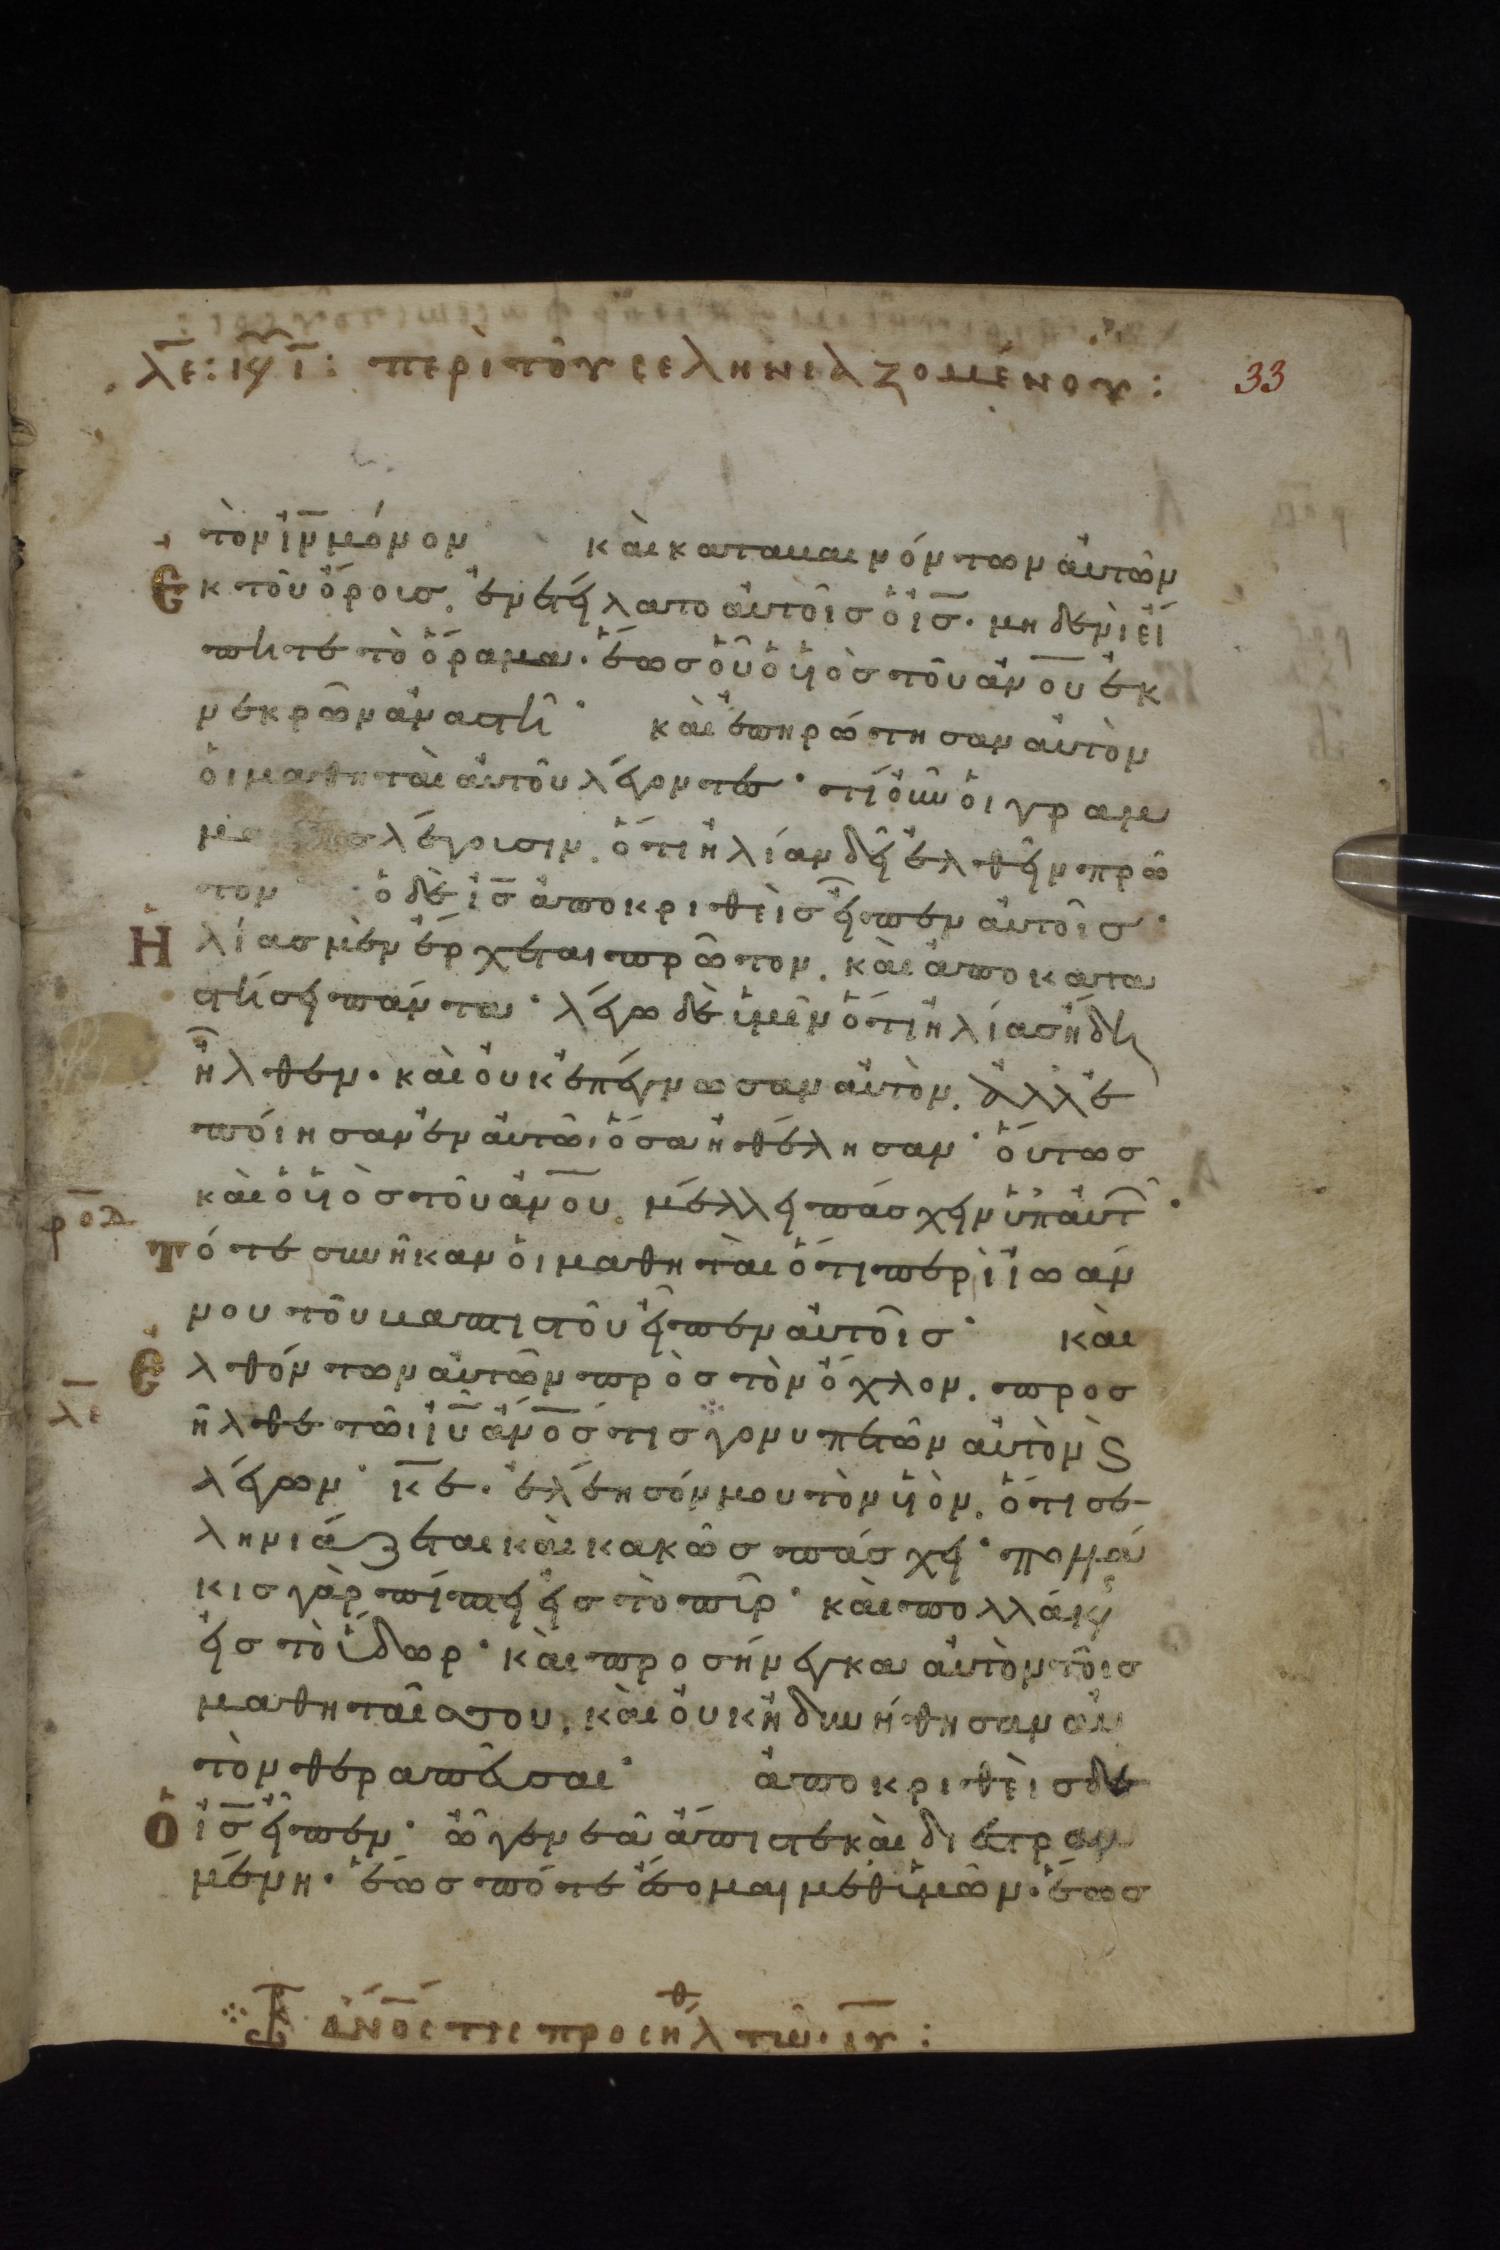 λε: κυ ι: περὶ τοῦ σεληνιαζομένου: 33
τὸν ιν μόνον καὶ καταβαινόντων αὐτῶν
ἐκ τοῦ ὄρους. ἐνετείλατο αὐτοῖς ὁ ις. μηδενὶ εἴ
πητε τὸ ὅραμα. ἕως οὗ ὁ υἱὸς τοῦ ανου ἐκ
νεκρῶν ἀναστῆ. καὶ ἐπηρώτησαν αὐτὸν
οἱ μαθηταὶ αὐτοῦ λέγοντες. τί οὖν οἱ γραμ
λέγουσιν. ὅτι ἠλίαν δεῖ ἐλθεῖν πρῶ
τον. ὁ δὲ ις ἀποκριθεὶς εἶπεν αὐτοῖς.
Ἠλίας μὲν ἔρχεται πρῶτον. καὶ ἀποκατα
στήσει πάντα. λέγω δὲ ὑμῖν ὅτι ἠλίας ἤδη
ἦλθεν. καὶ οὐκ ἐπέγνωσαν αὐτὸν. ἀλλ ἐ
ποίησαν ἐν αὐτῶι ὅσα ἠθέλησαν. οὕτως
καὶ ὁ υἱὸς τοῦ ανου. μέλλει πάσχειν ὑπ αυτ.
ροδ
Τότε συνῆκαν οἱ μαθηταὶ ὅτι περὶ ἰωάν
νου τοῦ βαπτιστοῦ εἶπεν αὐτοῖς. καὶ
ἐλθόντων αὐτῶν πρὸς τὸν ὄχλον. προσ
λε
ῆλθε τῶι ιυ ανος τις γονυπετῶν αὐτὸν ϗ
λέγων. κε. ἐλέησόν μου τὸν υἱὸν. ὅτι σε
ληνιάζεται καὶ κακῶς πάσχει. πολλά
κις γὰρ πίπτει εἰς τὸ πῦρ. καὶ πολλάκις
εἰς τὸ ὕδωρ. καὶ προσήνεγκα αὐτὸν τοῖς
μαθηταῖς σου. καὶ οὐκ ἠδυνήθησαν αὐ
τὸν θεραπεῦσαι. ἀποκριθεὶς δὲ
ὁ ις εἶπεν. ὦ γενεὰ ἄπιστε καὶ διεστραμ
μένη. ἕως πότε ἔσομαι μεθ ὑμῶν. ἕως
ανος τις προσηλθ τῶ. ιυ: